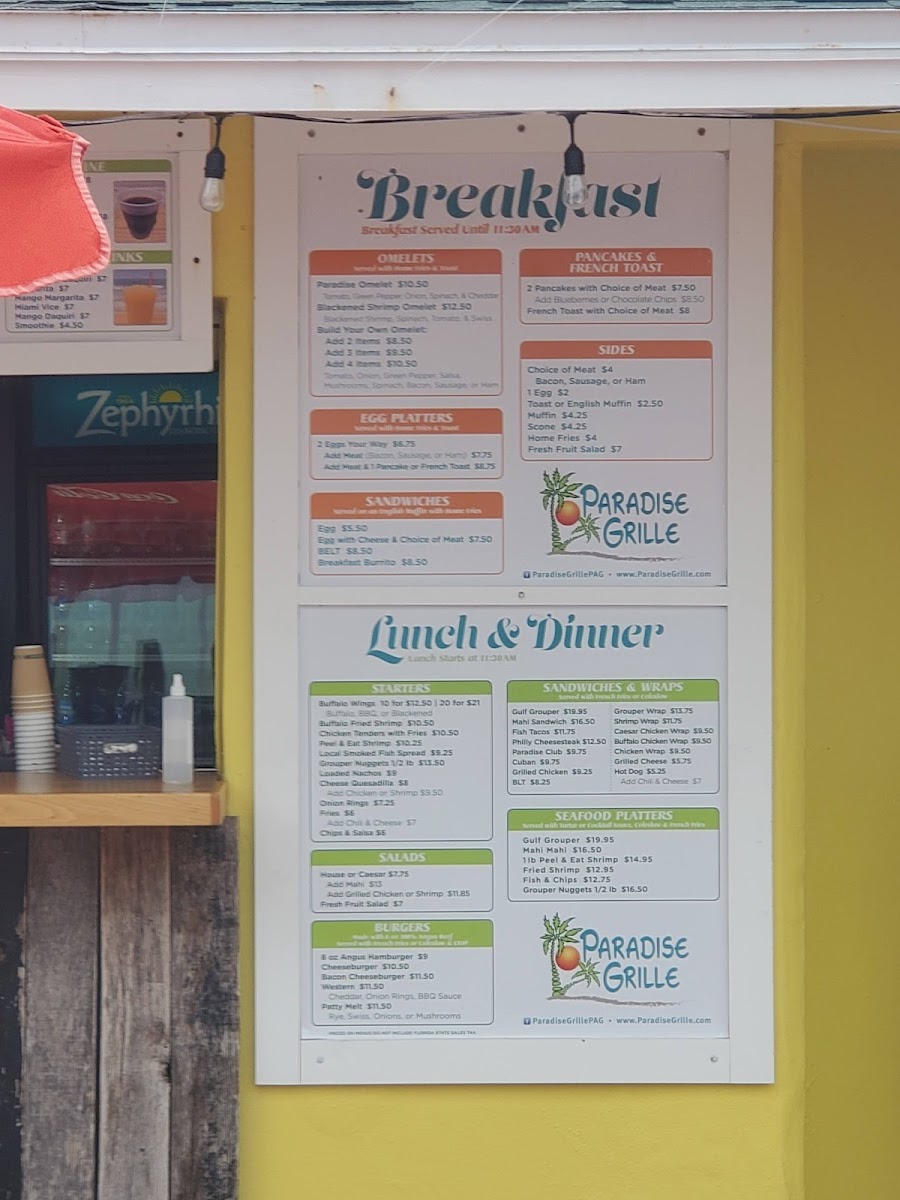 INE
INKS
$7
$7
Mango Margarita $7
Miami Vice $7
Mango Daquiri $7
Smoothie $4.50
Zephyrhi
Coca-Cola
Breakfast
Breakfast Served Until 11:30AM
OMELETS
Served with Home Fries & Toast
Paradise Omelet $10.50
Tomato, Green Pepper, Onion, Spinach, & Cheddar
Blackened Shrimp Omelet $12.50
Blackened Shrimp, Spinach, Tomato, & Swiss
Build Your Own Omelet:
Add 2 Items $8.50
Add 3 Items $9.50
Add 4 Items $10.50
Tomato, Onion, Green Pepper, Salsa,
Mushrooms, Spinach, Bacon, Sausage, or Ham
EGG PLATTERS
Served with Home Fries & Toast
2 Eggs Your Way $6.75
Add Meat (Bacon, Sausage, or Ham) $7.75
Add Meat & 1 Pancake or French Toast $8.75
SANDWICHES
Served on an English Muffin with Home Fries
Egg $5.50
Egg with Cheese & Choice of Meat $7.50
BELT $8.50
Breakfast Burrito $8.50
PANCAKES &
FRENCH TOAST
2 Pancakes with Choice of Meat $7.50
Add Blueberries or Chocolate Chips $8.50
French Toast with Choice of Meat $8
SIDES
Choice of Meat $4
Bacon, Sausage, or Ham
1 Egg $2
Toast or English Muffin $2.50
Muffin $4.25
Scone $4.25
Home Fries $4
Fresh Fruit Salad $7
PARADISE
GRILLE
ParadiseGrillePAG • www.ParadiseGrille.com
Lunch & Dinner
Lunch Starts at 11:30AM
STARTERS
Buffalo Wings 10 for $12.50 | 20 for $21
Buffalo, BBQ, or Blackened
Buffalo Fried Shrimp $10.50
Chicken Tenders with Fries $10.50
Peel & Eat Shrimp $10.25
Local Smoked Fish Spread $9.25
Grouper Nuggets 1/2 lb $13.50
Loaded Nachos $9
Cheese Quesadilla $8
Add Chicken or Shrimp $9.50
Onion Rings $7.25
Fries $6
Add Chili & Cheese $7
Chips & Salsa $6
SALADS
House or Caesar $7.75
Add Mahi $13
Add Grilled Chicken or Shrimp $11.85
Fresh Fruit Salad $7
BURGERS
Made with 8 oz 100% Angus Beef
Served with French Fries or Coleslaw & LTOP
8 oz Angus Hamburger $9
Cheeseburger $10.50
Bacon Cheeseburger $11.50
Western $11.50
Cheddar, Onion Rings, BBQ Sauce
Patty Melt $11.50
Rye, Swiss, Onions, or Mushrooms
PRICES ON MENUS DO NOT INCLUDE FLORIDA STATE SALES TAX
SANDWICHES & WRAPS
Served with French Fries or Coleslaw
Gulf Grouper $19.95
Mahi Sandwich $16.50
Fish Tacos $11.75
Philly Cheesesteak $12.50
Paradise Club $9.75
Cuban $9.75
Grilled Chicken $9.25
BLT $8.25
Grouper Wrap $13.75
Shrimp Wrap $11.75
Caesar Chicken Wrap $9.50
Buffalo Chicken Wrap $9.50
Chicken Wrap $9.50
Grilled Cheese $5.75
Hot Dog $5.25
Add Chili & Cheese $7
SEAFOOD PLATTERS
Served with Tartar or Cocktail Sauce, Coleslaw & French Fries
Gulf Grouper $19.95
Mahi Mahi $16.50
1 lb Peel & Eat Shrimp $14.95
Fried Shrimp $12.95
Fish & Chips $12.75
Grouper Nuggets 1/2 lb $16.50
PARADISE
GRILLE
ParadiseGrillePAG • www.ParadiseGrille.com